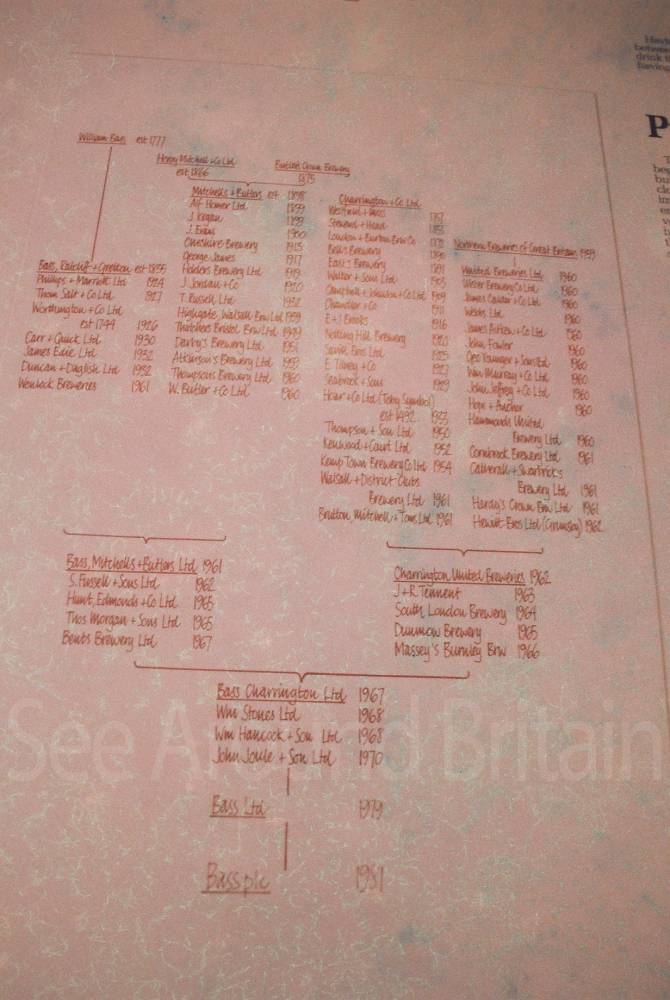 William Bass est 1777
Henry Mitchell + Co Ltd
est 1866
Crown Brewery
1875
Bass, Ratcliff + Gretton est 1835
Phillips + Marriott Ltd 1924
Thom Salt + Co Ltd 1927
Worthington + Co Ltd
est 1744 1926
Carr + Quick Ltd 1930
James Eadie Ltd 1932
Duncan + Daglish Ltd 1952
Wenlock Breweries 1961
Mitchells + Butlers est 1898
Alf Homer Ltd 1899
J. Evans 1900
Cheshire Brewery 1913
George James 1917
Holders Brewery Ltd 1919
J. Jordan + Co 1920
T. Russell Ltd 1932
Highgate, Walsall Brw Ltd 1939
Thatchers Bristol Brw Ltd 1949
Darby's Brewery Ltd 1951
Atkinson's Brewery Ltd 1959
Thompsons Brewery Ltd 1960
W. Butler + Co Ltd 1960
Charrington + Co Ltd
Steward + Head
London + Burton Brw Co
Bell's Brewery
East's Brewery
Walter + Sons Ltd
Chandler + Co
E + J Brooks 1916
Notting Hill Brewery
Savill Bros Ltd 1925
E. Tilney + Co 1927
Seabrook + Sons 1929
Hoare + Co Ltd (Toby Symbol)
1933
Thompson + Son Ltd 1950
Kenwood + Court Ltd 1952
Kemp Town Brewery Co Ltd 1954
Walsall + District Clubs
Brewery Ltd 1961
Brutton, Mitchell + Toms Ltd 1961
Northern Breweries of Great Britain 1959
United Breweries Ltd 1960
James Calder + Co Ltd 1960
Webbs Ltd 1960
James Aitken + Co Ltd 1960
John Fowler 1960
Geo Younger + Sons Ltd 1960
Wm Murray + Co Ltd 1960
John Jeffrey + Co Ltd 1960
Hope + Anchor 1960
Hammonds United
Brewery Ltd 1960
Cornbrook Brewery Ltd 1961
Catterall + Swarbrick's
Brewery Ltd 1961
Hardy's Crown Brw Ltd 1961
Hewitt Bros Ltd (Grimsby) 1962
Bass, Mitchells + Butlers Ltd 1961
S. Fussell + Sons Ltd 1962
Hunt, Edmonds + Co Ltd 1965
Thos Morgan + Sons Ltd 1965
Bents Brewery Ltd 1967
Charrington United Breweries 1962
J + R Tennent 1963
South London Brewery 1964
Dunmow Brewery 1965
Massey's Burnley Brw 1966
Bass Charrington Ltd 1967
Wm Stones Ltd 1968
Wm Hancock + Son Ltd 1968
John Joule + Son Ltd 1970
Bass Ltd 1979
Bass plc 1981
See Around Britain
P